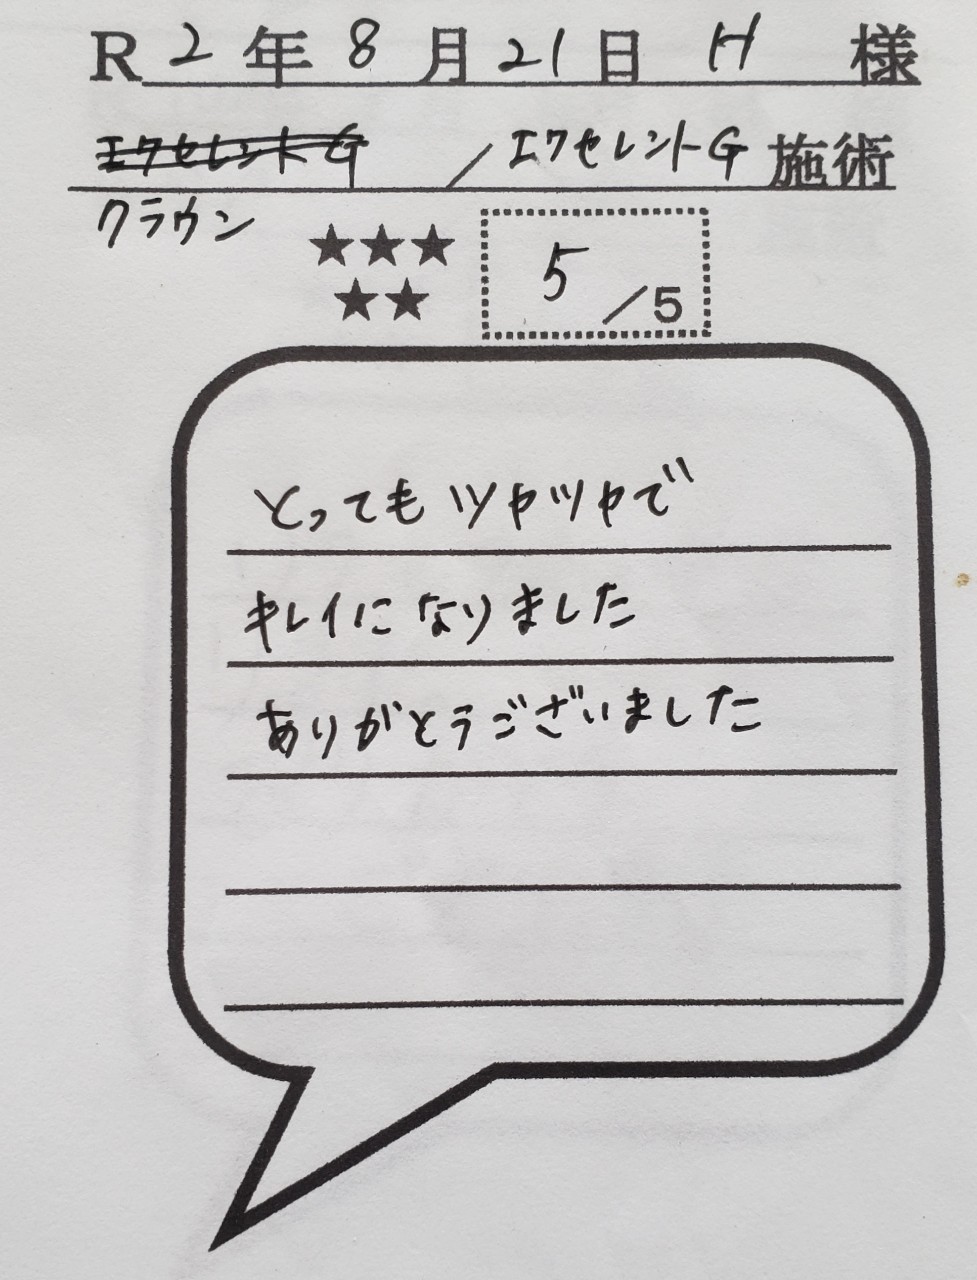 R2年8月21日 H 様
エクセレントG / エクセレントG 施術
クラウン
★★★
★★
5/5
とってもツヤツヤで
キレイになりました
ありがとうございました